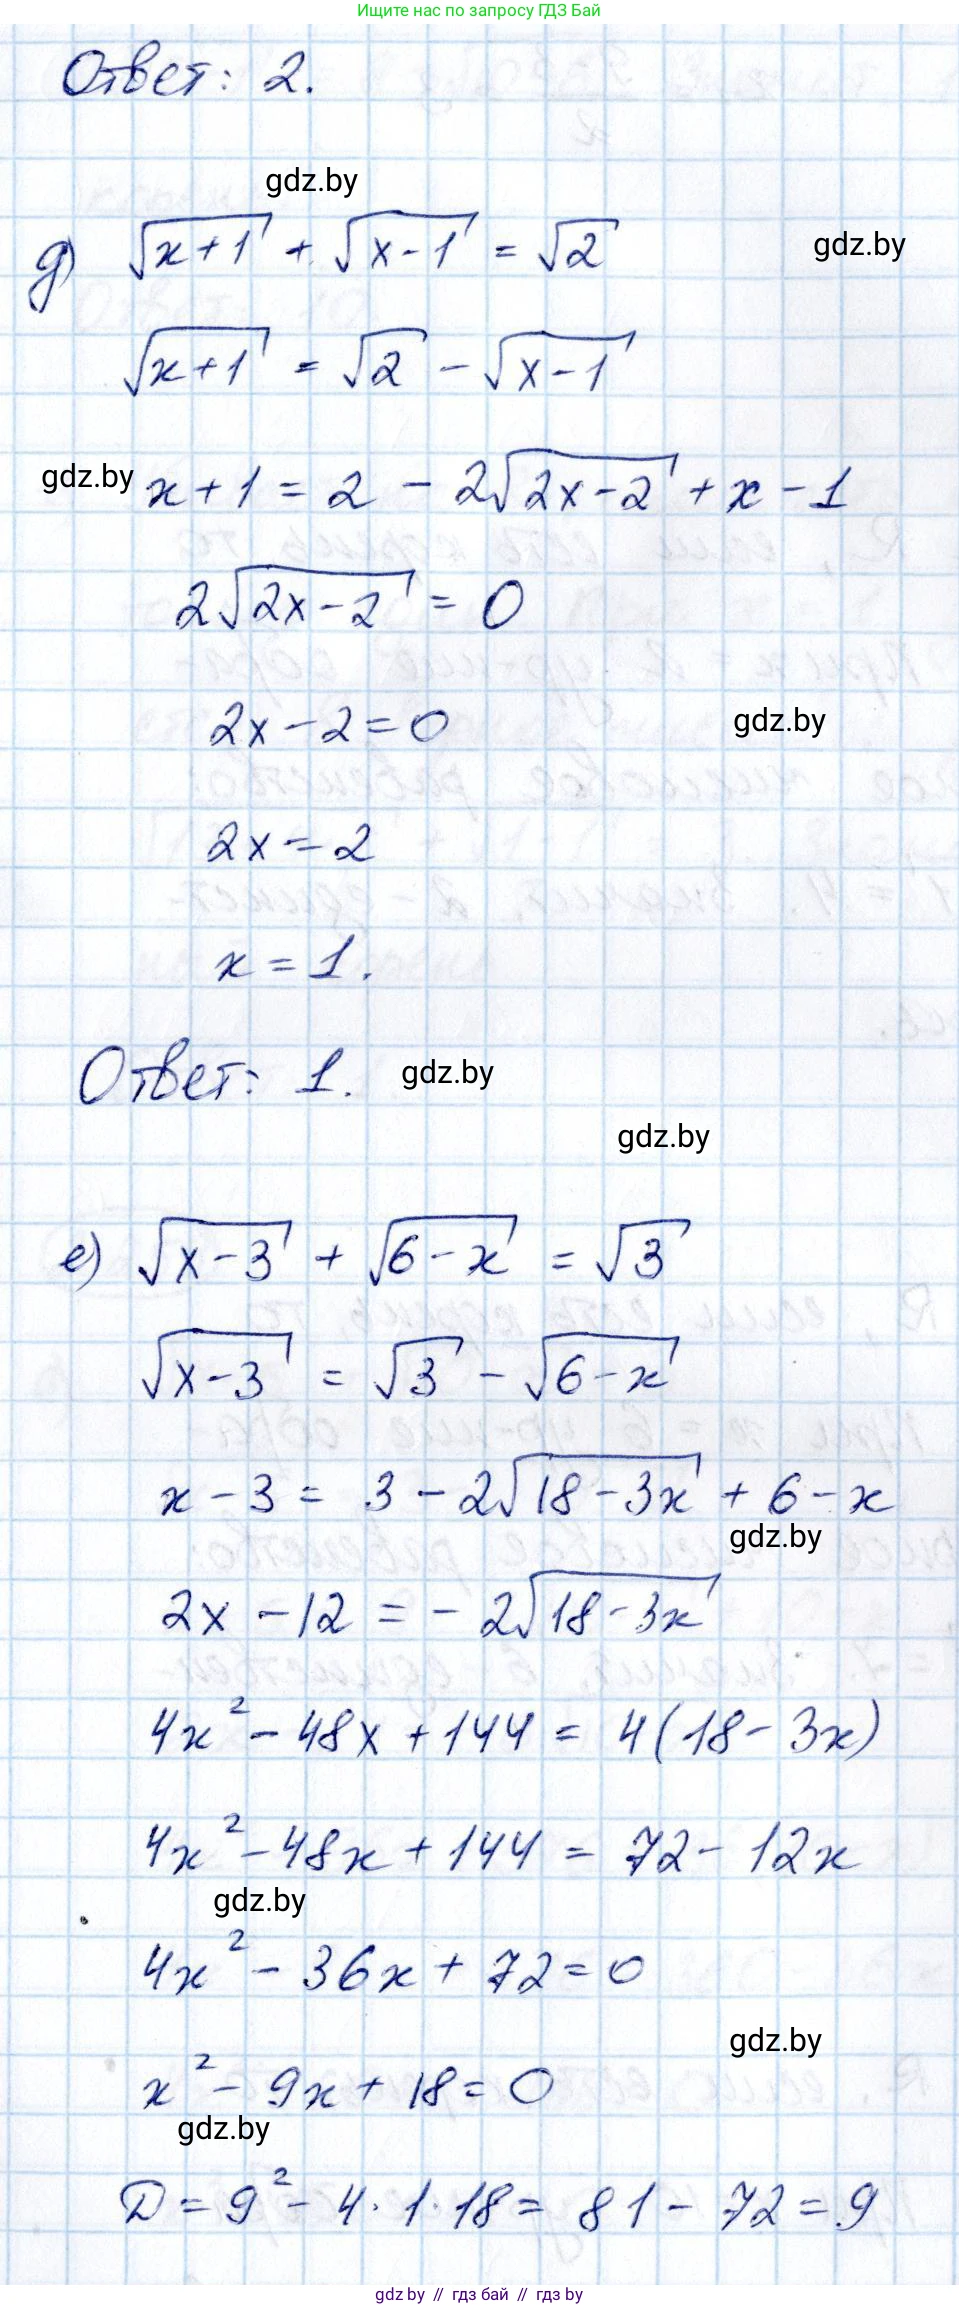 Ищите нас по запросу ГДЗ Бай
Ответ: 2.
gdz.by
д) √(x+1) + √(x-1) = √2
gdz.by
√(x+1) = √2 - √(x-1)
gdz.by
x+1 = 2 - 2√(2x-2) + x - 1
2√(2x-2) = 0
2x - 2 = 0
gdz.by
2x = 2
x = 1.
Ответ: 1.
gdz.by
gdz.by
е) √(x-3) + √(6-x) = √3
√(x-3) = √3 - √(6-x)
x - 3 = 3 - 2√(18-3x) + 6 - x
gdz.by
2x - 12 = - 2√(18-3x)
4x² - 48x + 144 = 4(18 - 3x)
4x² - 48x + 144 = 72 - 12x
gdz.by
4x² - 36x + 72 = 0
gdz.by
x² - 9x + 18 = 0
gdz.by
D = 9² - 4·1·18 = 81 - 72 = 9
gdz.by // гдз бай // гдз by